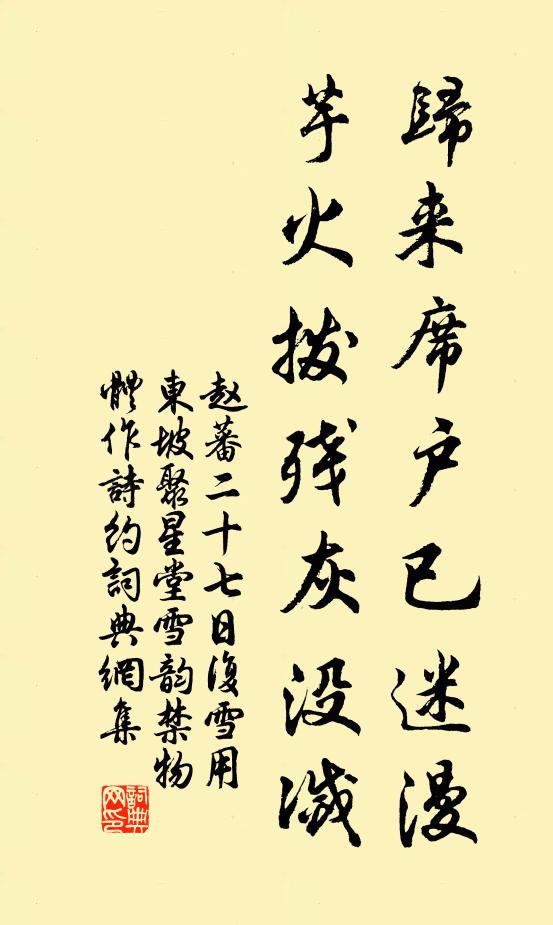 歸来席户已迷漫
芋火拨残灰没滅
赵蕃二十七日復雪用
東坡聚星堂雪韵禁物
體作詩約詞典網集
詞典网印